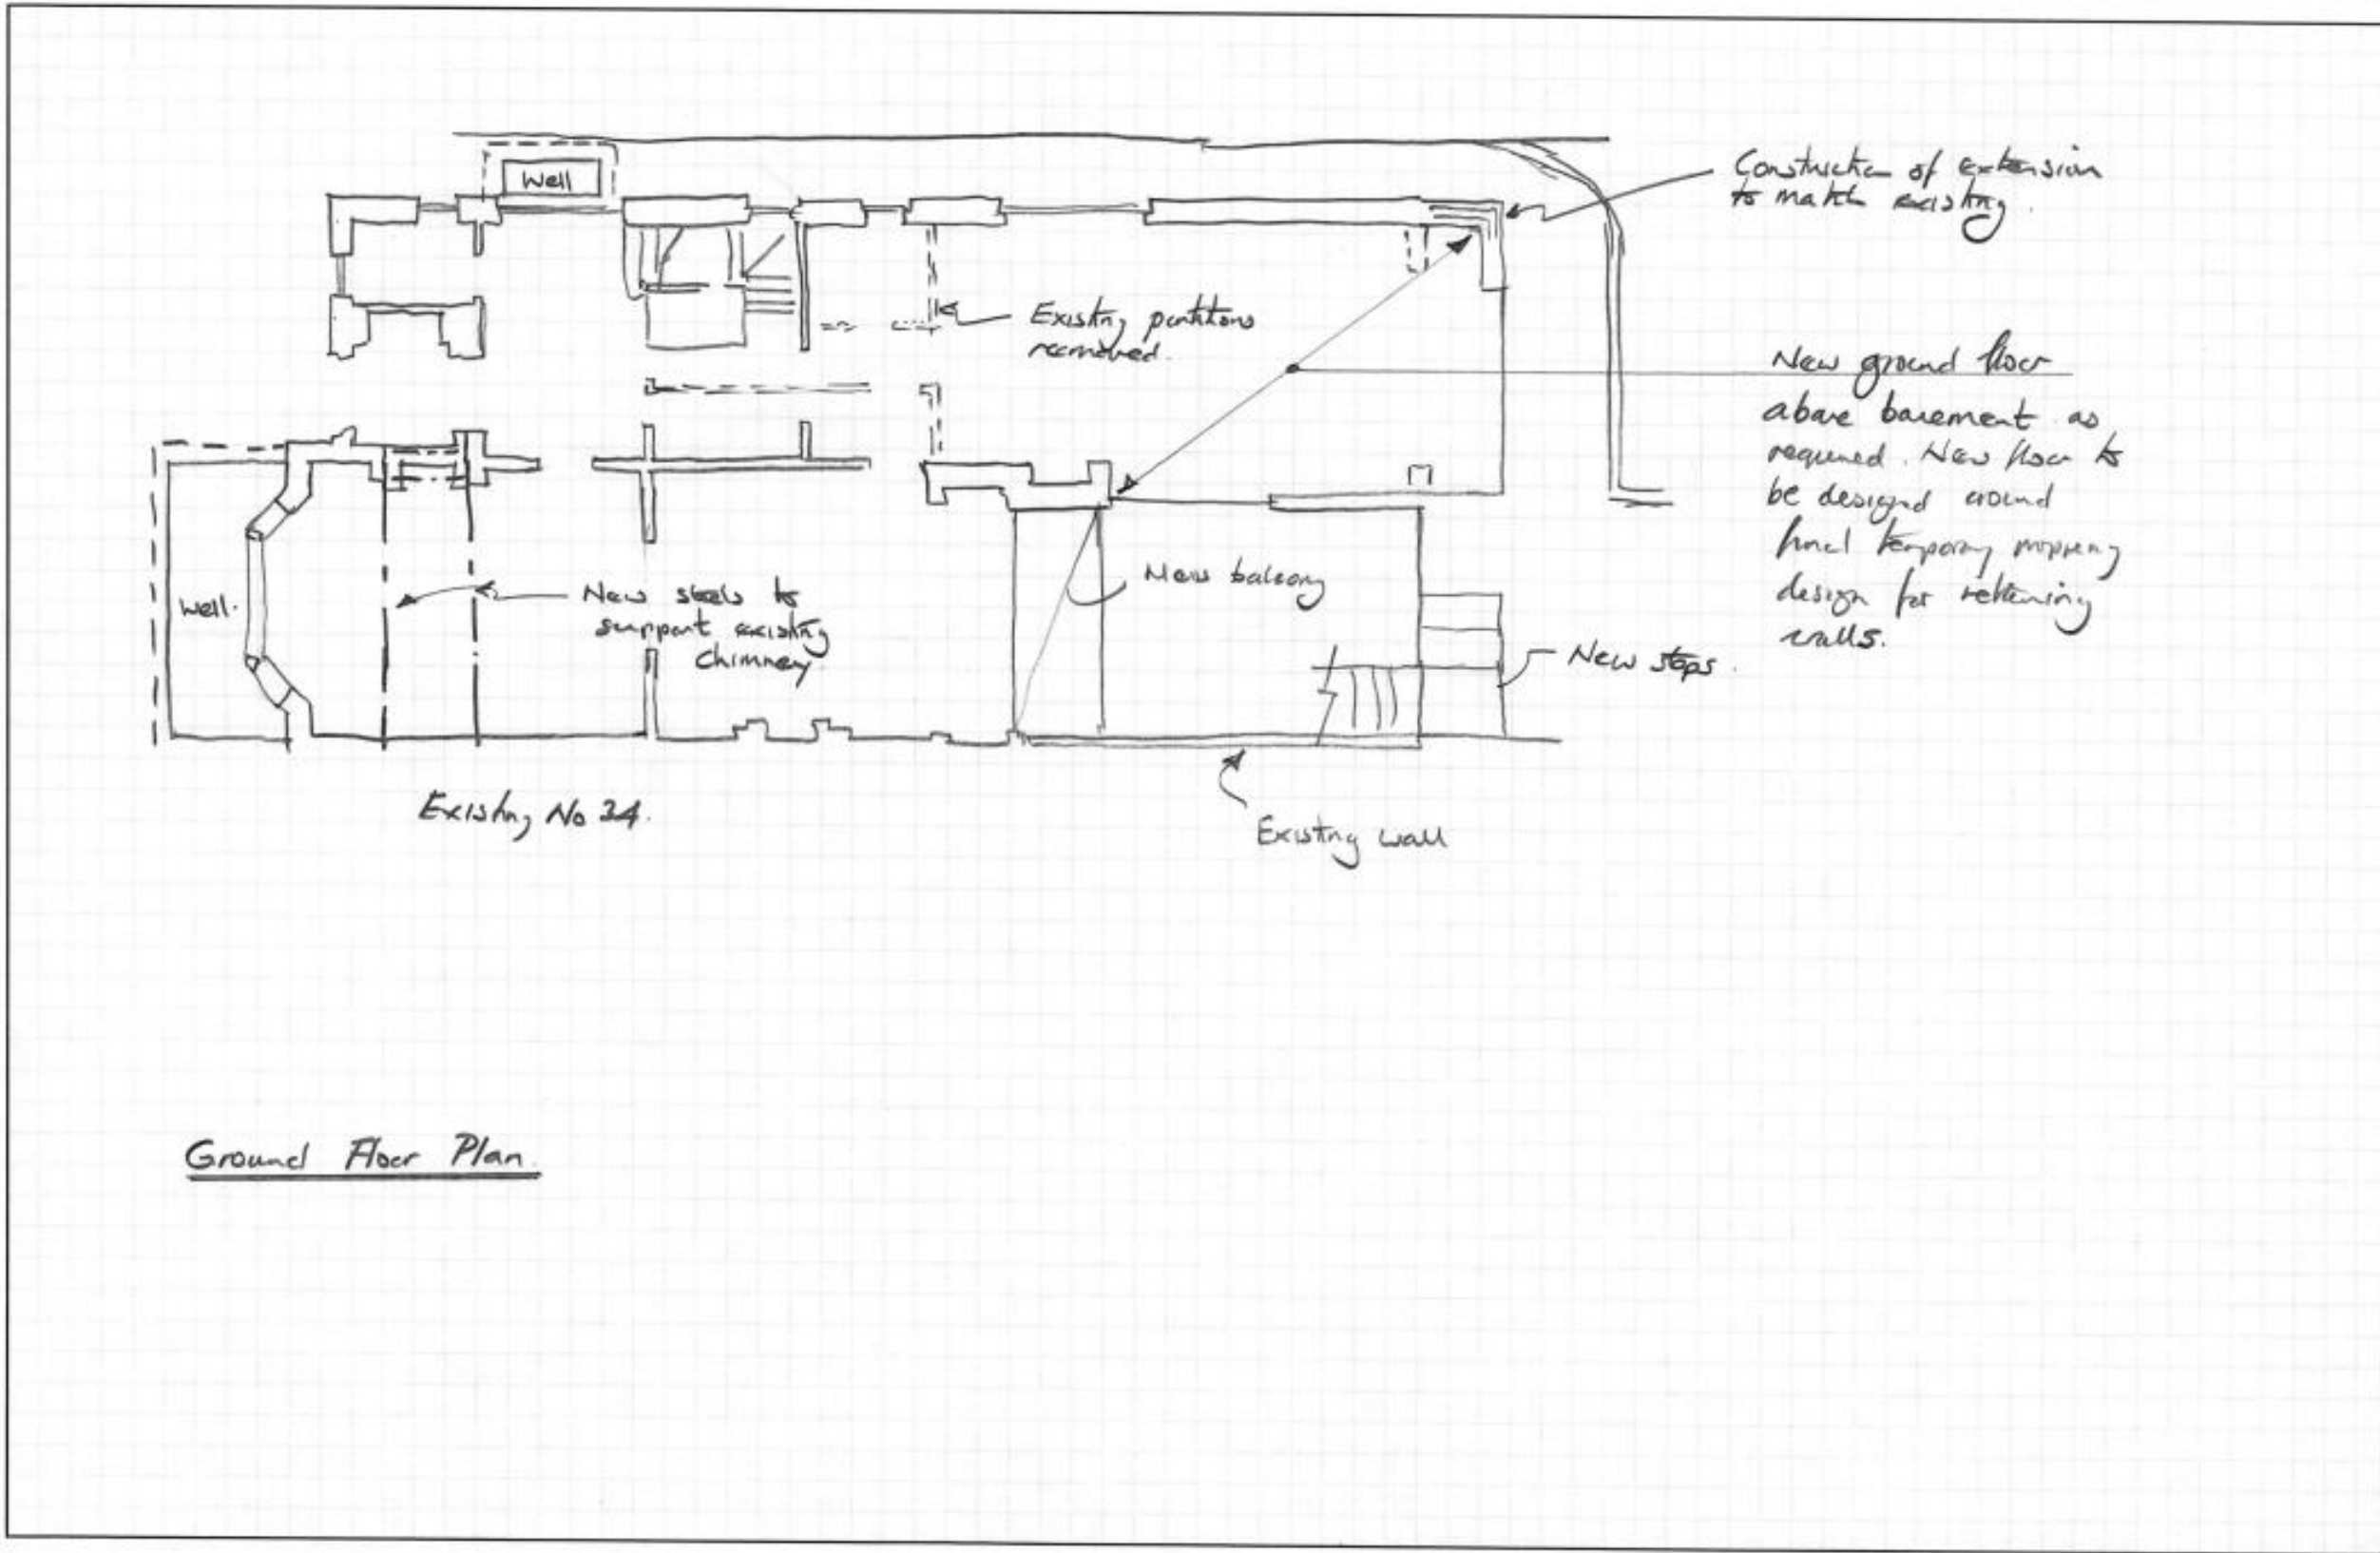 Well
Construction of extension
to match existing.
Existing partitions
removed.
New ground floor
above basement as
required. New floor to
be designed around
final temporary propping
design for retaining
walls.
Well.
New steels to
support existing
chimney
New balcony
New steps.
Existing No 34.
Existing wall
Ground Floor Plan.